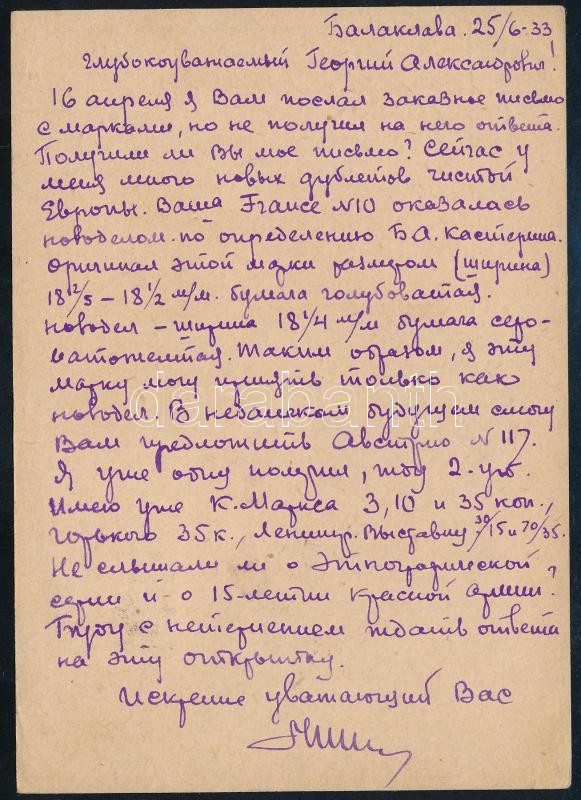 Балаклава. 25/6-33
Глубокоуважаемый Георгий Александрович!
16 апреля я Вам послал заказное письмо
с марками, но не получил на него ответа.
Получили ли Вы мое письмо? Сейчас у
меня много новых дублетов чистой
Европы. Ваша France N10 оказалась
новоделом по определению Б.А. Кастерина.
Оригинал этой марки размером (ширина)
18 2/5 – 18 1/2 м/м. бумага голубоватая.
новодел – ширина 18 1/4 м/м бумага серо-
ватожелтая. Таким образом, я эту
марку могу принять только как
новодел. В недалеком будущем смогу
Вам предложить Австрию N 117.
Я уже одну получил, жду 2-ую.
Имею уже К. Маркса 3, 10 и 35 коп.,
Горького 35 к., Ленингр. Выставку 30/15 и 70/35.
Не слышали ли о Этнографической
серии и о 15-летии Красной армии?
Буду с нетерпением ждать ответа
на эту открытку.
Искренне уважающий Вас
darabanth